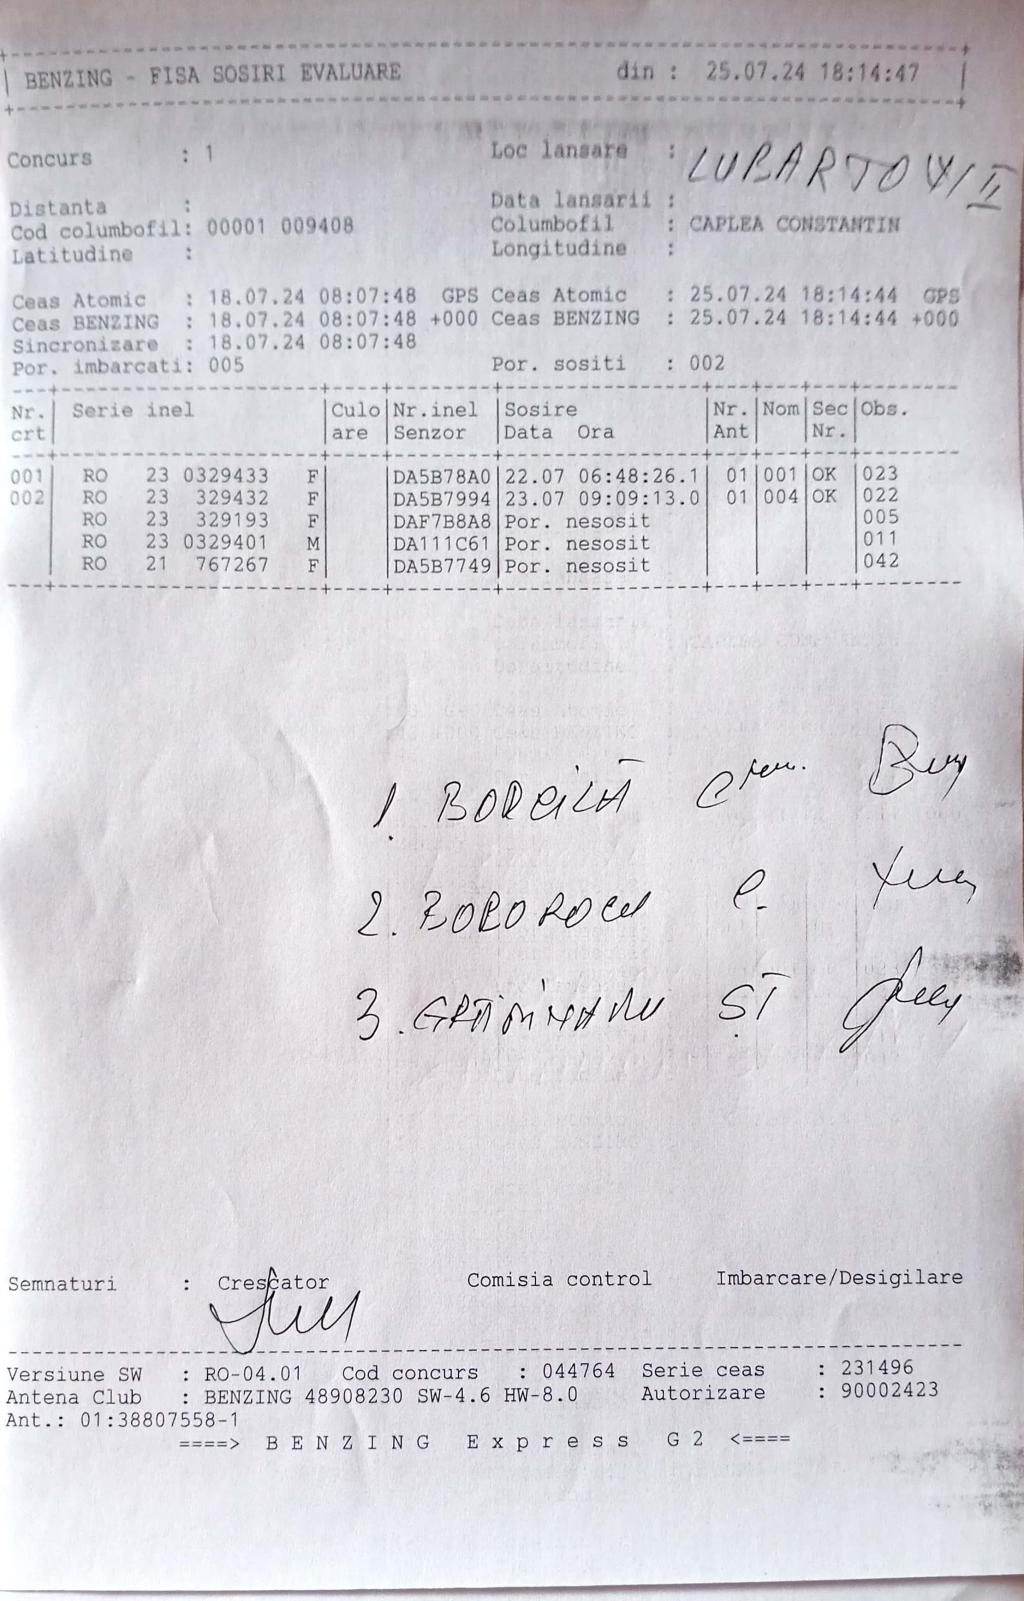 BENZING - FISA SOSIRI EVALUARE din : 25.07.24 18:14:47
Concurs : 1 Loc lansare : LUBARTOW/II
Distanta : Data lansarii :
Cod columbofil: 00001 009408 Columbofil : CAPLEA CONSTANTIN
Latitudine : Longitudine :
Ceas Atomic : 18.07.24 08:07:48 GPS Ceas Atomic : 25.07.24 18:14:44 GPS
Ceas BENZING : 18.07.24 08:07:48 +000 Ceas BENZING : 25.07.24 18:14:44 +000
Sincronizare : 18.07.24 08:07:48
Por. imbarcati: 005 Por. sositi : 002
Nr. Serie inel Culo Nr.inel Sosire Nr. Nom Sec Obs.
crt are Senzor Data Ora Ant Nr.
001 RO 23 0329433 F DA5B78A0 22.07 06:48:26.1 01 001 OK 023
002 RO 23 329432 F DA5B7994 23.07 09:09:13.0 01 004 OK 022
RO 23 329193 F DAF7B8A8 Por. nesosit 005
RO 23 0329401 M DA111C61 Por. nesosit 011
RO 21 767267 F DA5B7749 Por. nesosit 042
1.
2. C.
3. ST
Semnaturi : Crescator Comisia control Imbarcare/Desigilare
Versiune SW : RO-04.01 Cod concurs : 044764 Serie ceas : 231496
Antena Club : BENZING 48908230 SW-4.6 HW-8.0 Autorizare : 90002423
Ant.: 01:38807558-1
====> BENZING Express G2 <====